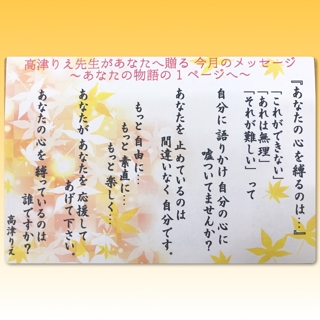 高津りえ先生があなたへ贈る 今月のメッセージ
～あなたの物語の１ページへ～
『あなたの心を縛るのは…』
「これができない」
「あれは無理」
「それが難しい」 って
自分に語りかけ自分の心に
嘘ついてませんか？
あなたを止めているのは
間違いなく自分です。
もっと自由に…
もっと素直に…
もっと楽しく…
あなたがあなたを応援して
あげて下さい。
あなたの心を縛っているのは
誰ですか？
高津りえ